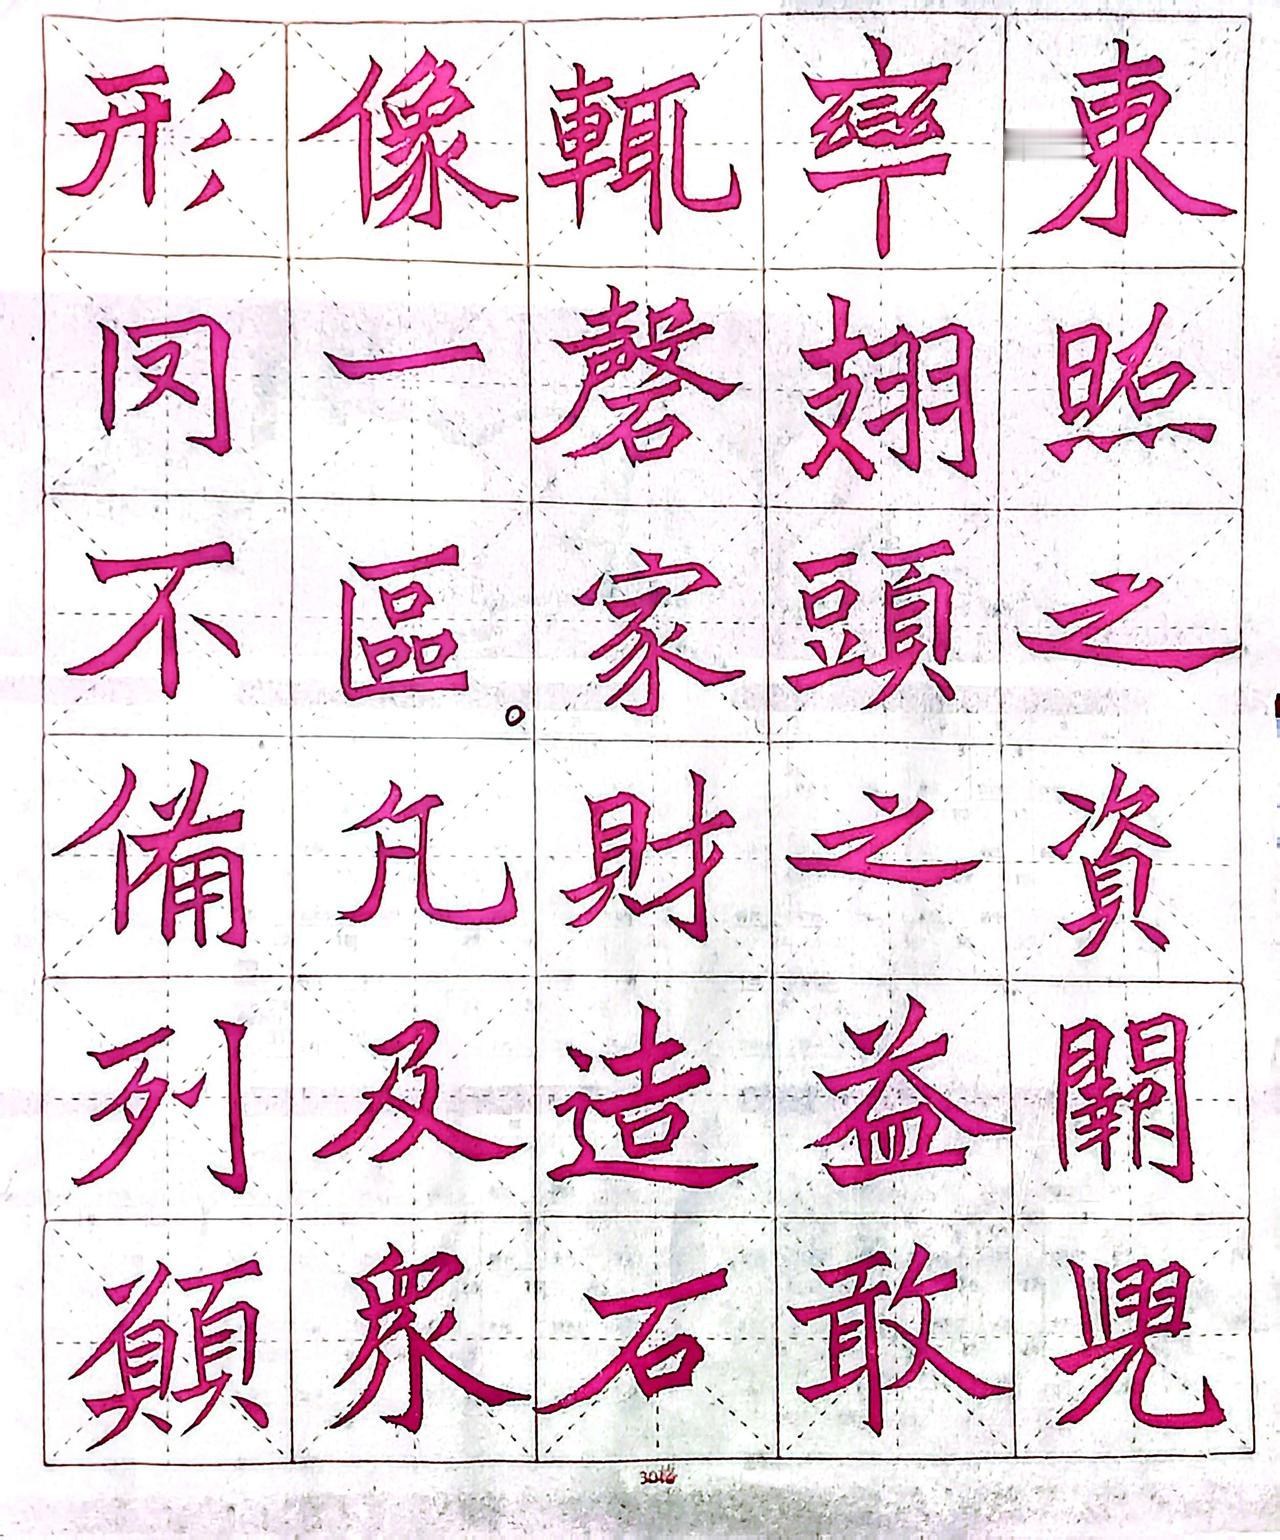 東照之資闕兜
率翅頭之益敢
輒磬家財造石
像一區。凡及眾
形罔不備列願